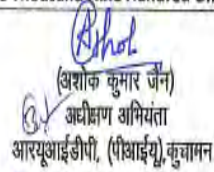 Ashok
(अशोक कुमार जैन)
अधीक्षण अभियंता
आरयूआईडीपी, (पीआईयू),कुचामन